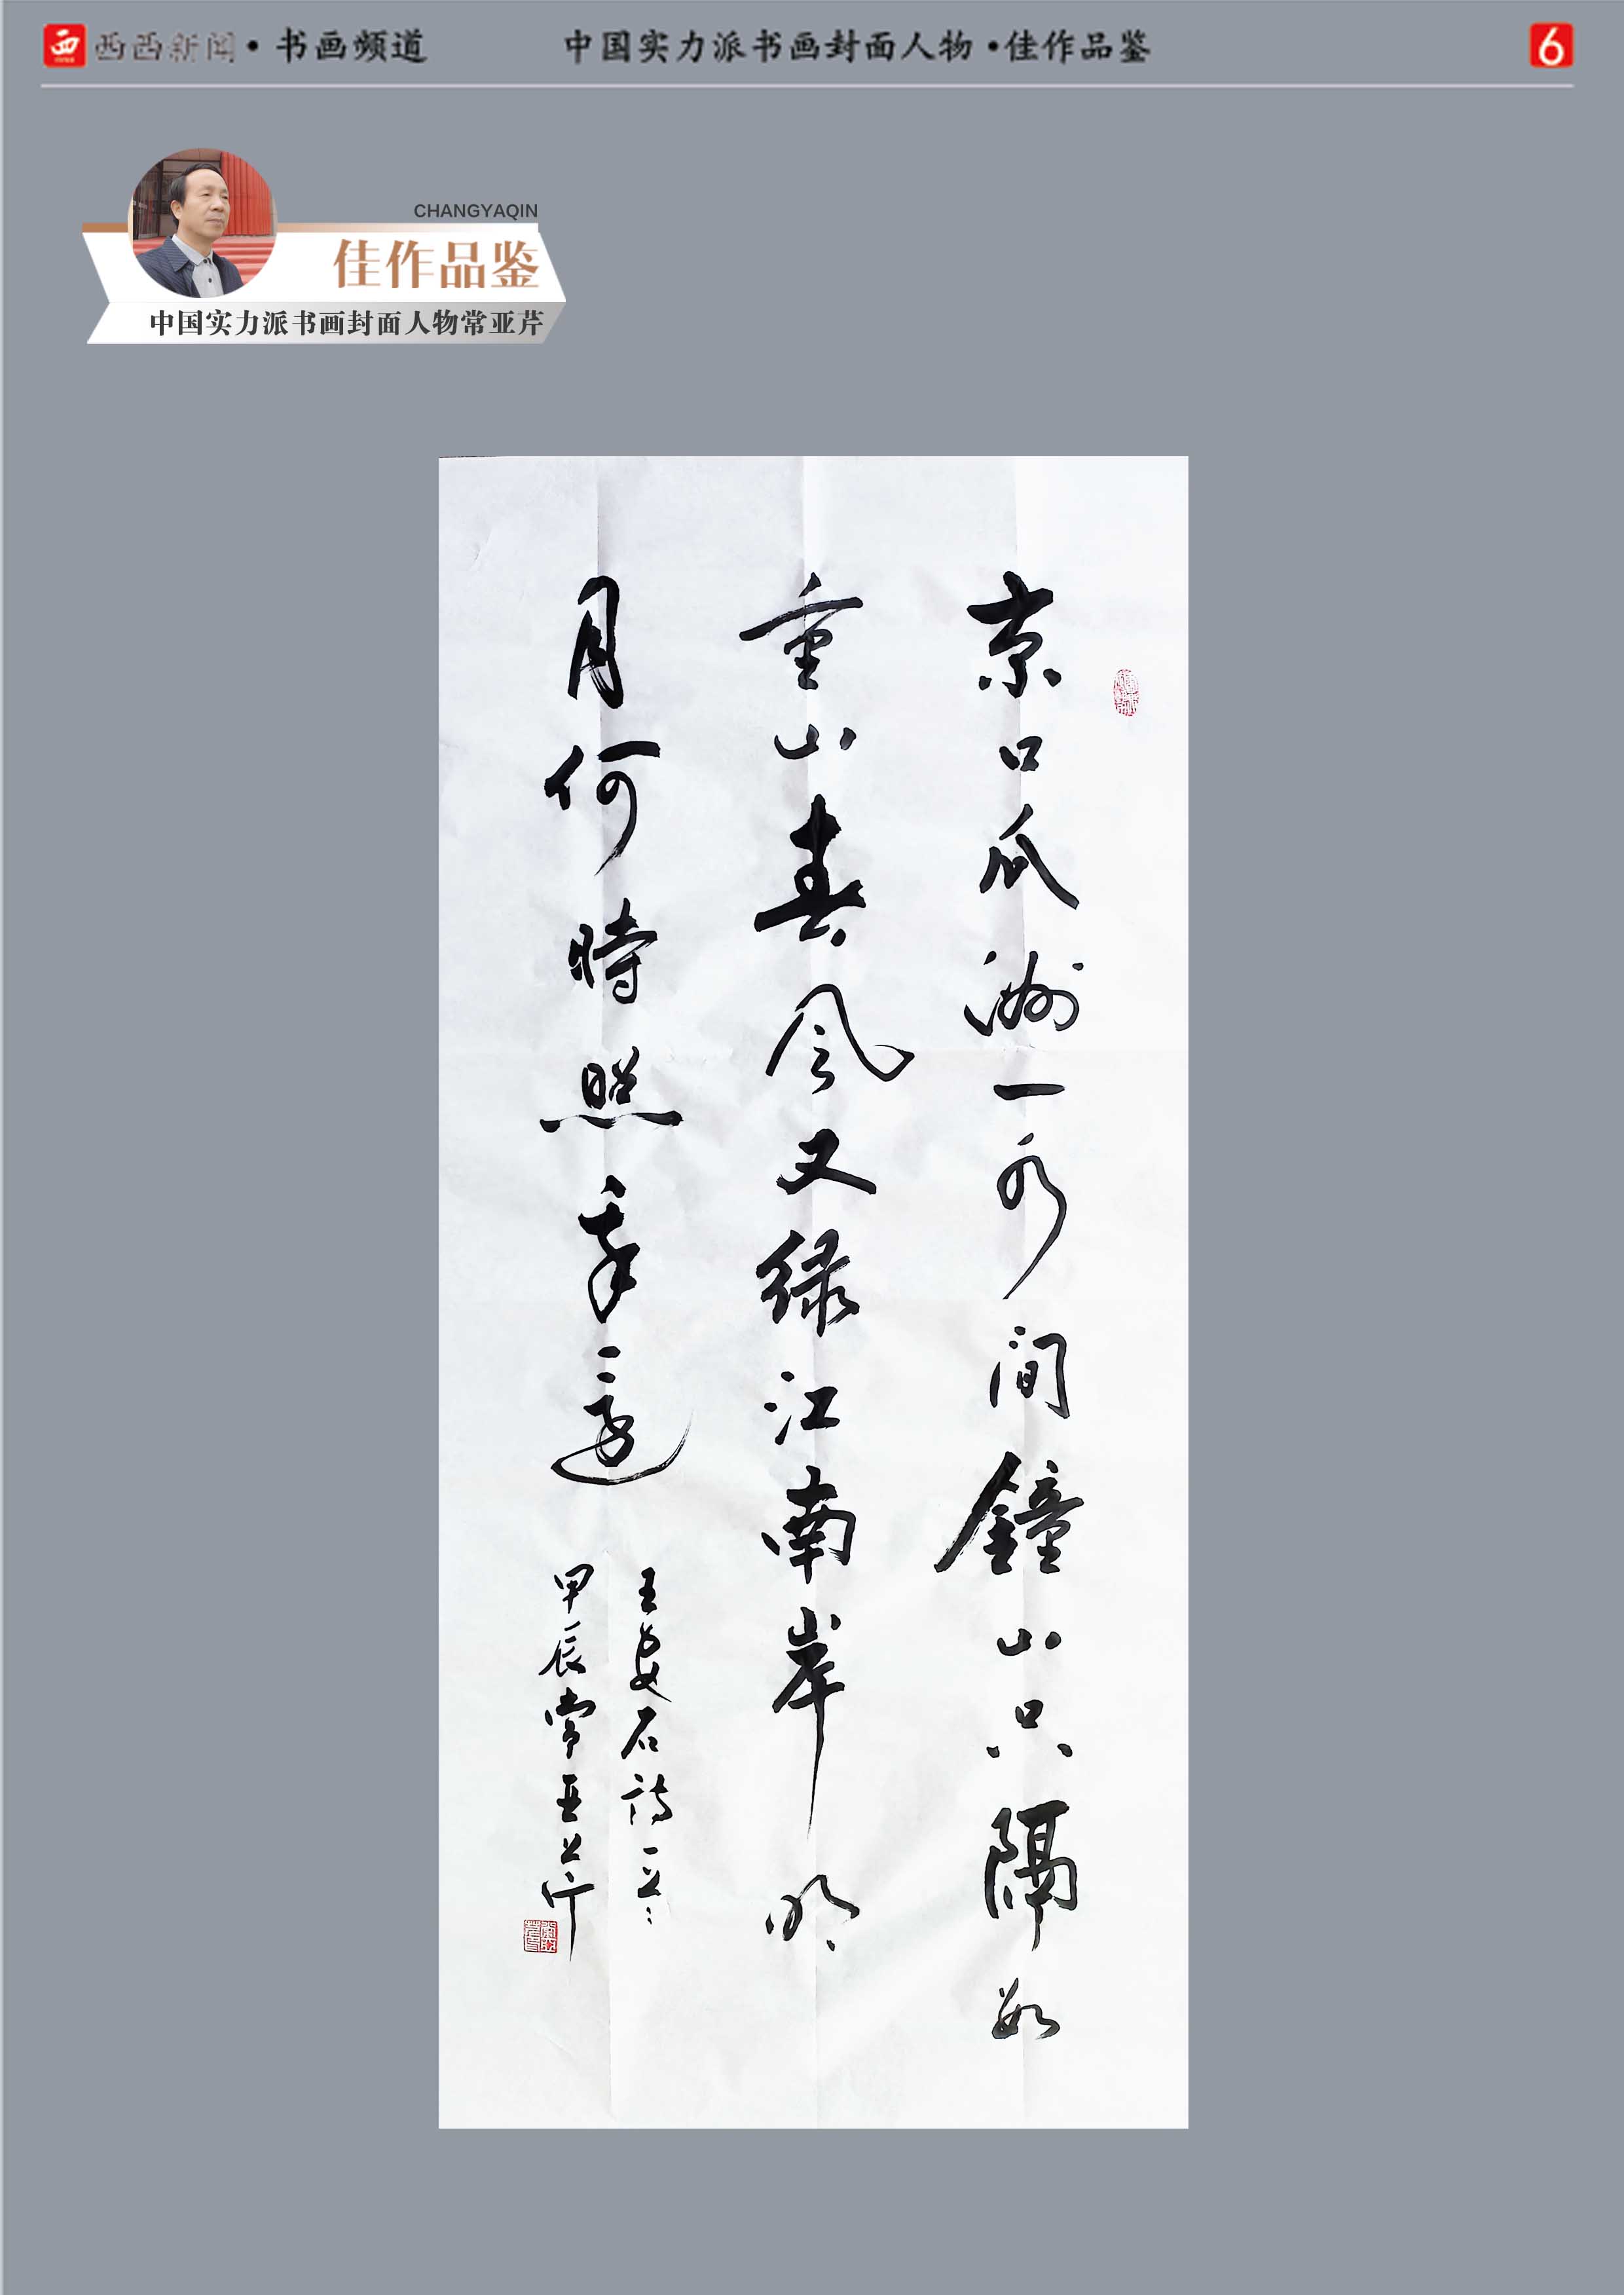 西西新闻·书画频道
中国实力派书画封面人物·佳作品鉴
6
CHANGYAQIN
佳作品鉴
中国实力派书画封面人物常亚芹
京口瓜洲一水间鐘山只隔数
重山春风又绿江南岸明
月何時照我還
王安石诗一首
甲辰常亚芹